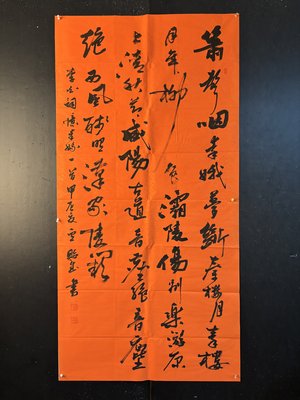 簫聲咽秦娥夢斷秦樓月秦樓
月年柳色灞陵傷別樂游原
上清秋節咸陽古道音塵絕音塵
絕西風殘照漢家陵闕
李白詞憶秦娥一首甲辰夏雲書